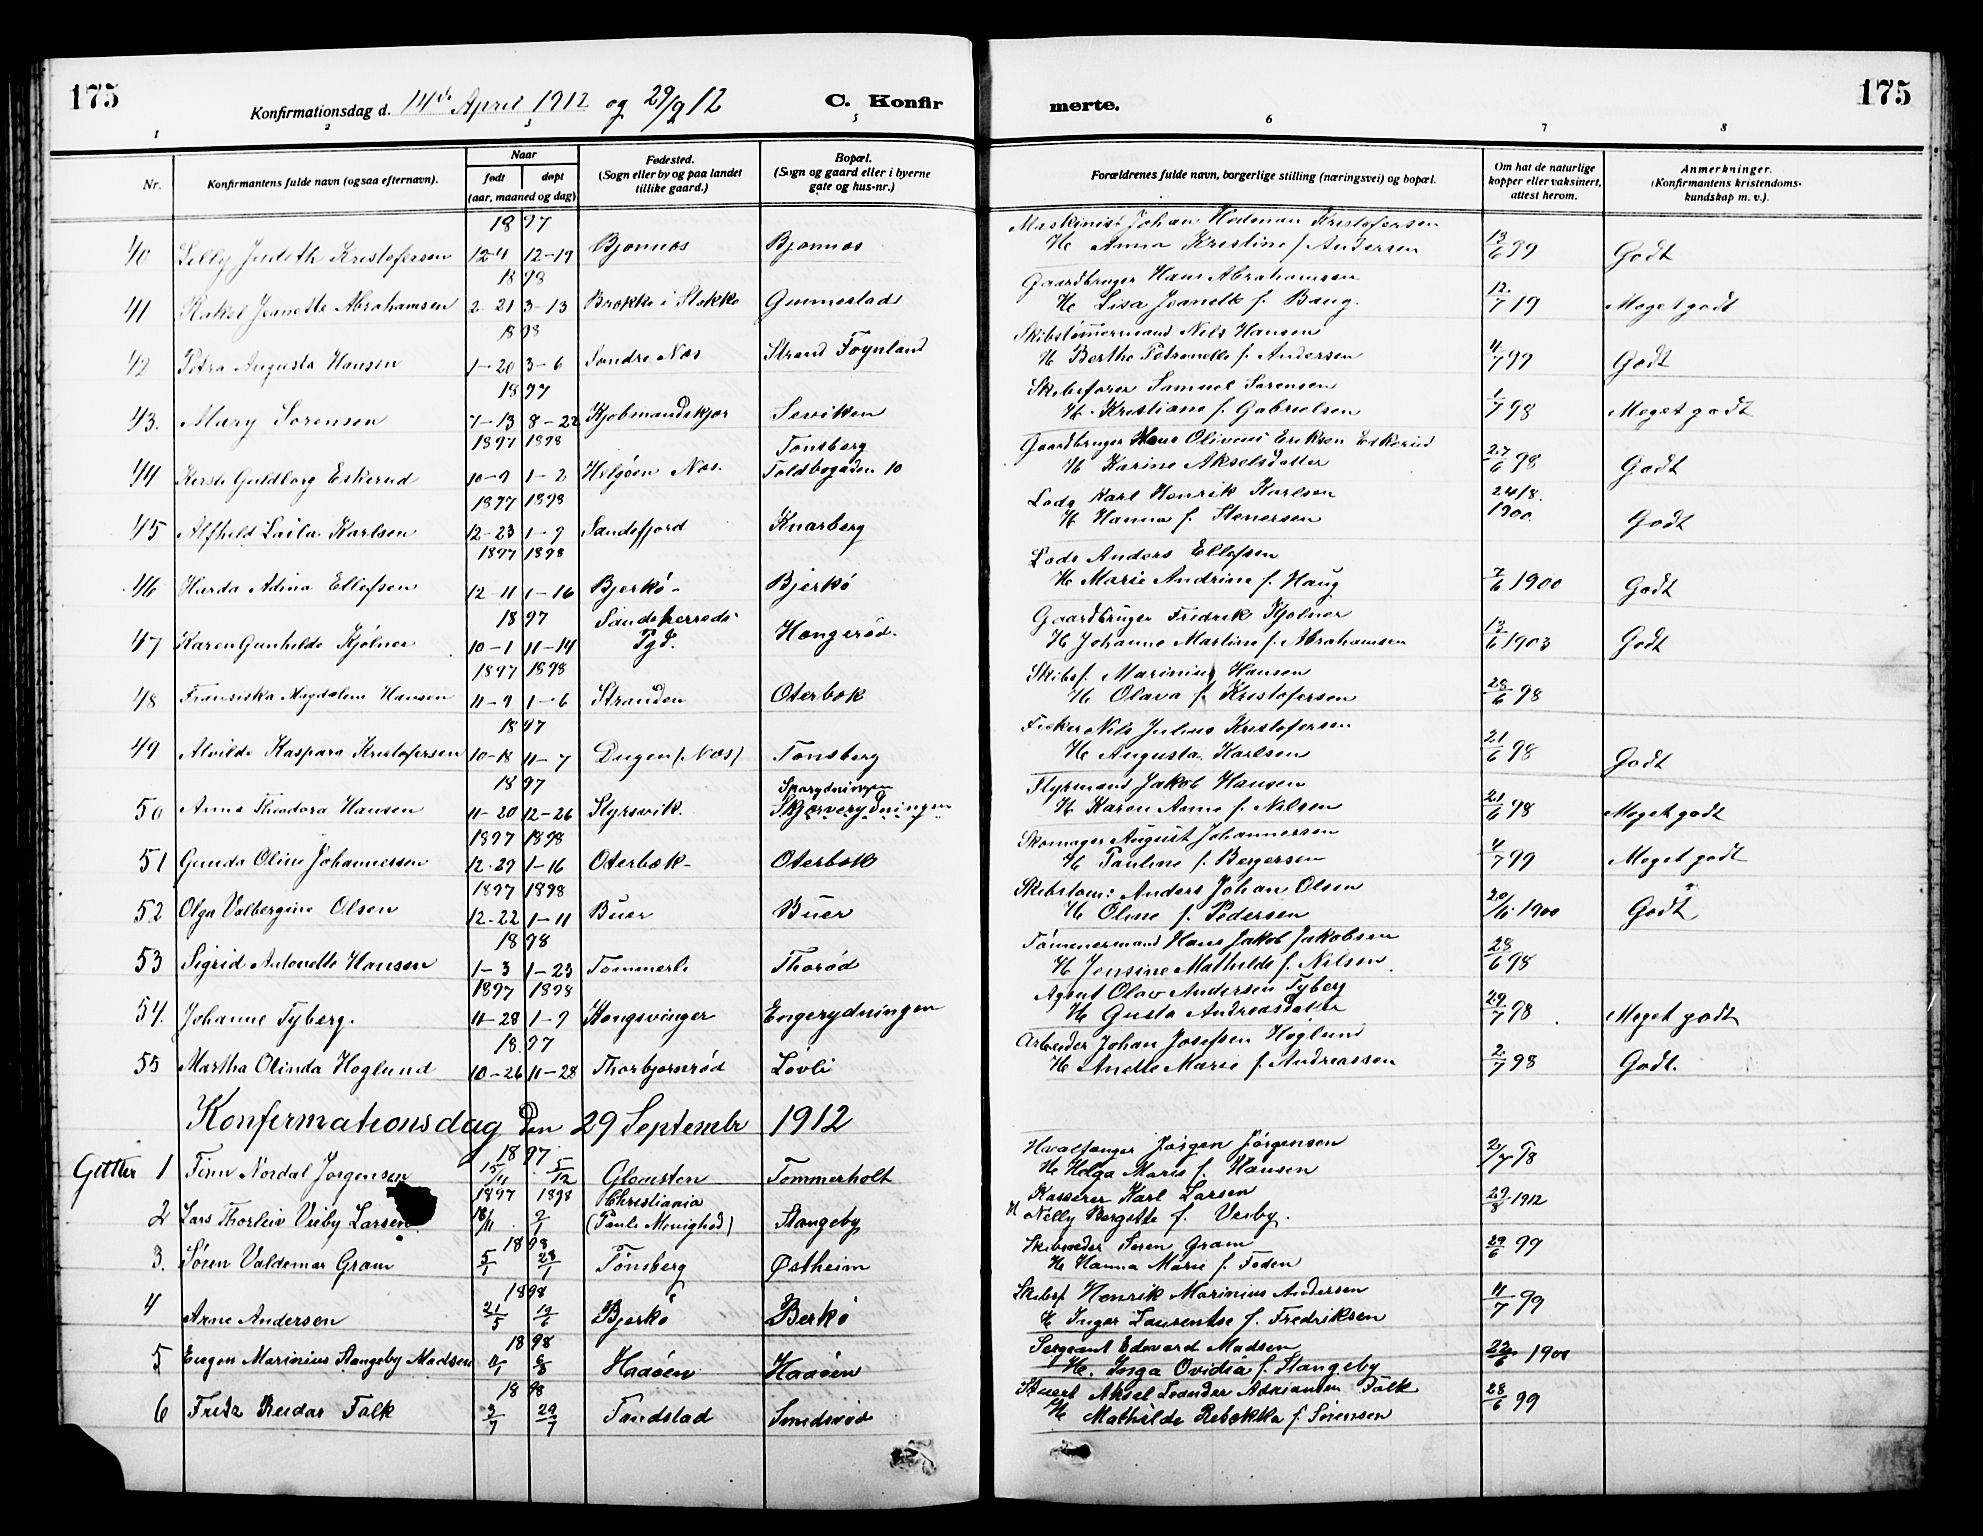 175
Konfirmationsdag d. 14de April 1912 og 29/9 12
C. Konfir
merte.
175
1 2 3 5 6 7 8
Nr.
Konfirmantens fulde navn (ogsaa efternavn).
Naar
født døpt
(aar, maaned og dag)
Fødested.
(Sogn eller by og paa landet
tillike gaard.)
Bopæl.
(Sogn og gaard eller i byerne
gate og hus-nr.)
Forældrenes fulde navn, borgerlige stilling (næringsvei) og bopæl.
Om hat de naturlige
kopper eller vaksinert,
attest herom.
Anmerkninger.
(Konfirmantens kristendoms-
kundskap m. v.).
1897 Maskinist Johan Hedman Kristofersen
40 Lilly Judith Kristofersen 12-4 12-19 Bjønnes Bjønnes H Anna Kristine f Andersen 13/6 99 Godt
1898 Gaardbruger Hans Abrahamsen
41 Rakel Jeanette Abrahamsen 2-21 3-13 Brekke i Stokke Gunnestad H Lisa Jeanette f. Baug. 12/7 19 Meget godt
1898 Skibstømmermand Nils Hansen
42 Petra Augusta Hansen 1-20 3-6 Søndre Nes Strand Føynland H Berthe Petronelle f. Andersen 4/7 99 Godt
1897 Skibsfører Samuel Sørensen
43. Mary Sørensen 7-13 8-22 Kjøbmandskjær Seviken H. Kristiane f. Gabrielsen 1/7 98 Meget godt
1897 1898 Tønsberg Gaardbruger Hans Oliveus Eriksen Eskerud
44 Guldborg Eskerud 10-9 1-2 Helgøen Nes. Toldbogaden 10 H Karine Akselsdatter 27/6 98 Godt
1897 1898 Lods Karl Henrik Karlsen 24/8.
45 Alfhild Laila Karlsen 12-23 1-9 Sandefjord Knarberg H Hanna f. Stenersen 1900 Godt
1897 1898 Lods Anders Ellefsen
46 Harda Adina Ellefsen 12-11 1-16 Bjerkö- Bjerkö H Marie Andrine f. Haug 7/6 1900 Godt
1897 Sandeherreds- Gaardbruger Fredrik Kjølner
47 Karen Gunhilde Kjølner 10-1 11-14 Pgd. Hengsrød. H Johanne Martine f. Abrahamsen 13/6 1903 Godt
1897 1898 Skibsf. Marinius Hansen
48 Fransiska Magdalene Hansen 11-9 1-6 Stranden Oterbæk H Olava f. Kristofersen 28/6 98
1897 Fisker Nils Julius Kristofersen
49 Alvilde Kaspara Kristofersen 10-18 11-7 Dugen (Nes) Tønsberg H Augusta Karlsen 21/6 98 Godt
1897 Styrmand Jakob Hansen
50 Anna Theodora Hansen 11-20 12-26 Styrsvik. Skjerverydningen H Karen Anne f. Nilsen 21/6 98 Meget godt
1897 1898 Skomager August Johannessen
51 Gunda Oline Johannessen 12-29 1-16 Oterbæk- Oterbæk H Pauline f. Bergersen 4/7 99 Meget godt
1897 1898 Skibstøm: Anders Johan Olsen
52 Olga Valbergine Olsen 12-22 1-11 Buer Buer H Oline f. Pedersen 20/6 1900 Godt
1898 Tømmermand Hans Jakob Jakobsen
53 Sigrid Antonette Hansen 1-3 1-23 Tømmerli Thorød H Jensine Mathilde f. Nilsen. 28/6 98
1897 1898 Agent Olav Andersen Tyberg
54. Johanne Tyberg. 11-28 1-9 Kongsvinger Engerydningen H Gusta Andreasdatter 29/7 98 Meget godt
1897 Arbeider Johan Josefsen Høglund
55 Martha Olinda Høglund 10-26 11-28 Thorbjørnrød Løvli H Anette Marie f. Andreassen 2/7 98 Godt.
Konfirmationsdag den 29 Septembr 1912
1897 Hvalfanger Jørgen Jørgensen
Gutter 1 Finn Nordal Jørgensen 15/11 5/12 Glomsten Tømmerholt H Helga Marie f. Hansen 2/7 98
1897 1898 Christiania Kasserer Karl Larsen
2 Lars Thorleiv Veiby Larsen 18/11 2/1 (Pauls Menighed) Stangeby H Nelly Bergette f. Veiby. 29/8 1912
1898 Skibsreder Søren Gram
3. Søren Valdemar Gram 5/1 28/1 Tønsberg Østheim H Hanna Marie f. Foden 29/6 99
1898 Skibsf Henrik Marinius Andersen
4 Arne Andersen 21/5 19/6 Bjerkö Berkö H Inger Laurentse f. Fredriksen 11/7 99
1898 Sergeant Edevard Madsen
5 Eugen Marinius Stangeby Madsen Haaøen Haaøen H. Inga Ovidia f. Stangeby 22/6 1900
1898 Stuert Aksel Leander Adriansen Falk
6 Fritz Reidar Falk 3/7 29/7 Tandstad Smidsrød H Mathilde Rebekka f. Sørensen 28/6 99